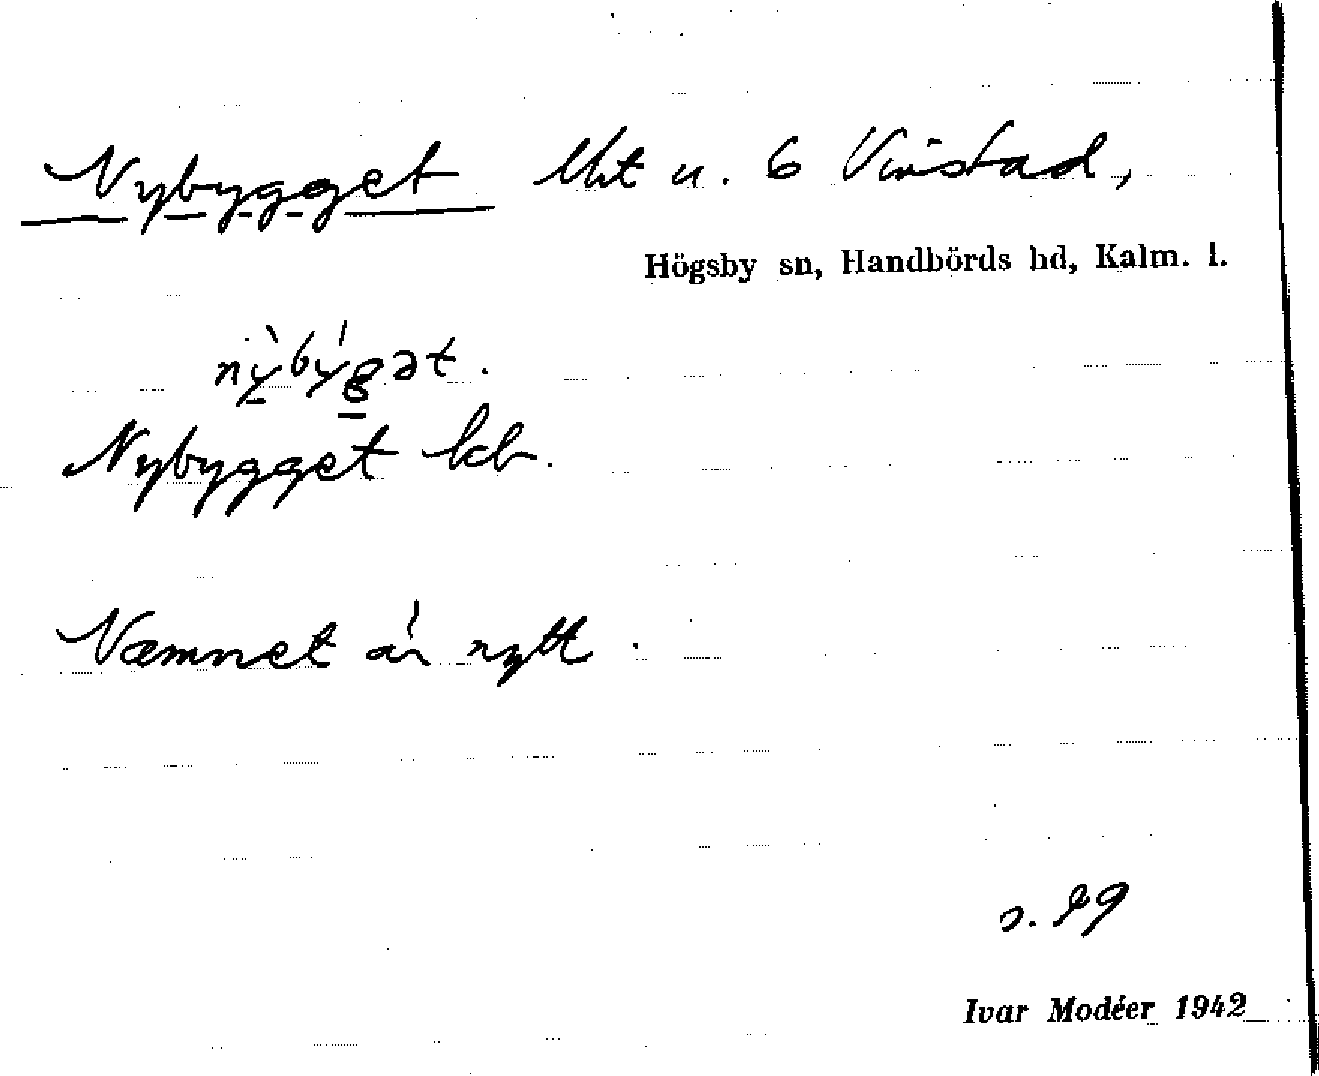 Nybygget lht u. 6 Vinstad,
Högsby sn, Handbörds hd, Kalm. l.
nỳbýgət.
Nybygget kb.
Namnet är nytt.
s. 29
Ivar Modéer 1942